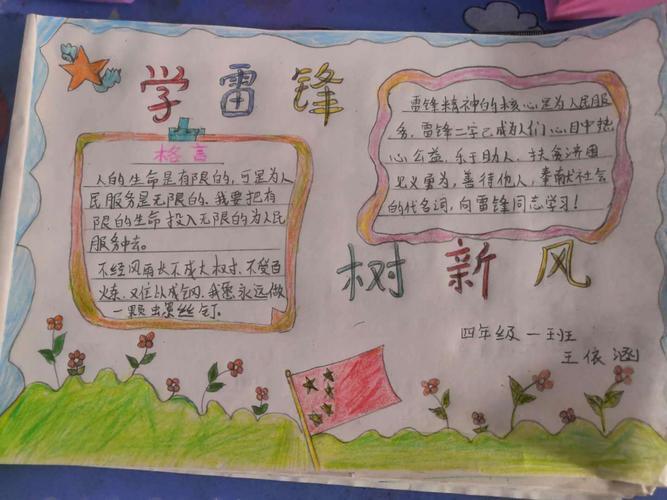 学雷锋
格言
人的生命是有限的，可是为人
民服务是无限的，我要把有
限的生命投入无限的为人民
服务中去。
不经风雨长不成大树，不受百
炼，以成钢，我愿永远做
一颗螺丝钉。
雷锋精神的核心是为人民服
务，雷锋二字已成为人们心目中热
心公益，乐于助人，扶贫济困
见义勇为，善待他人，奉献社会
的代名词，向雷锋同志学习！
树新风
四年级一班
王依涵